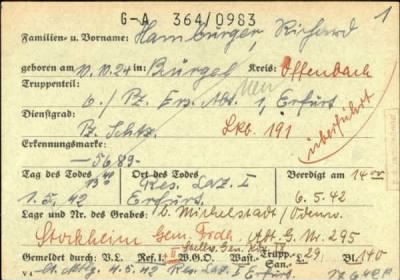 G-A 364/0983 1
Familien- u. Vorname: Hamburger, Richard
geboren am 11.11.24 in Bürgel Kreis: Offenbach
Truppenteil: neu
6./Pz. Ers. Abt. 1, Erfurt
Dienstgrad: Pz. Schtz. Lkb. 191 überführt
Erkennungsmarke:
-5689-
Tag des Todes Ort des Todes Beerdigt am 14
Res. Laz. I
1.5.42 Erfurt 6.5.42
Lage und Nr. des Grabes: b. Michelstadt / Odenw.
Stockheim Gem. Frdh. A.G. Nr. 295
Gemeldet durch: V.L. Ref. II W.G.O. Wast. Trupp. L 29 Bl. 140
San.-
4.5.42 Res. Laz. I Erfurt